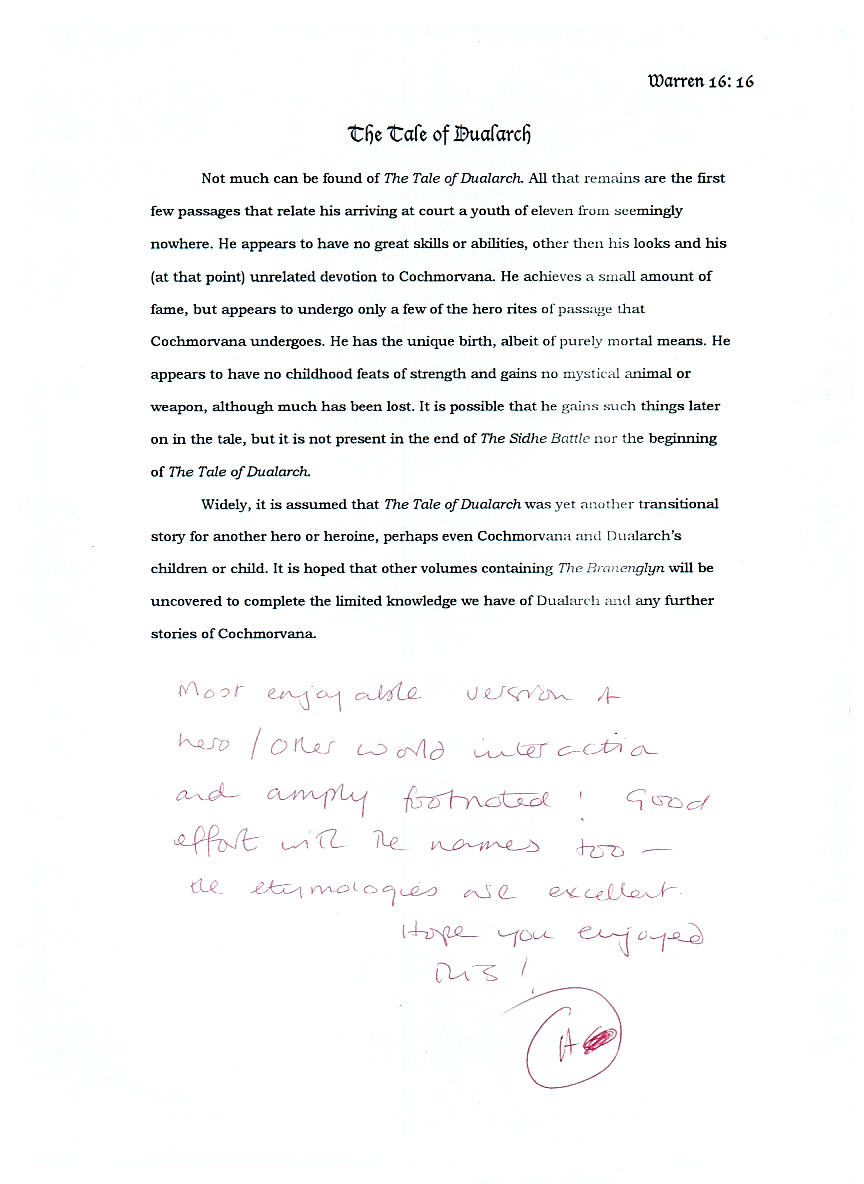 Warren 16: 16
The Tale of Dualarch
Not much can be found of The Tale of Dualarch. All that remains are the first
few passages that relate his arriving at court a youth of eleven from seemingly
nowhere. He appears to have no great skills or abilities, other then his looks and his
(at that point) unrelated devotion to Cochmorvana. He achieves a small amount of
fame, but appears to undergo only a few of the hero rites of passage that
Cochmorvana undergoes. He has the unique birth, albeit of purely mortal means. He
appears to have no childhood feats of strength and gains no mystical animal or
weapon, although much has been lost. It is possible that he gains such things later
on in the tale, but it is not present in the end of The Sidhe Battle nor the beginning
of The Tale of Dualarch.
Widely, it is assumed that The Tale of Dualarch was yet another transitional
story for another hero or heroine, perhaps even Cochmorvana and Dualarch's
children or child. It is hoped that other volumes containing The Branenglyn will be
uncovered to complete the limited knowledge we have of Dualarch and any further
stories of Cochmorvana.
Most enjoyable version of
hero / other world interaction
and amply footnoted! Good
effort with the names too —
the etymologies are excellent.
Hope you enjoyed
this!
A